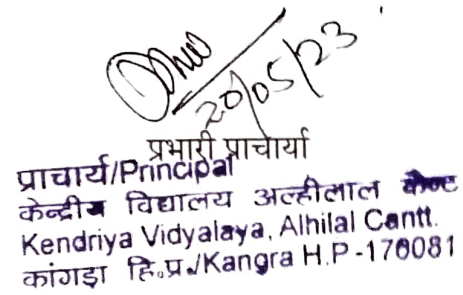 20/05/23
प्रभारी प्राचार्या
प्राचार्य/Principal
केन्द्रीय विद्यालय अल्हीलाल केन्ट
Kendriya Vidyalaya, Alhilal Cantt.
कांगड़ा हि.प्र./Kangra H.P-176081